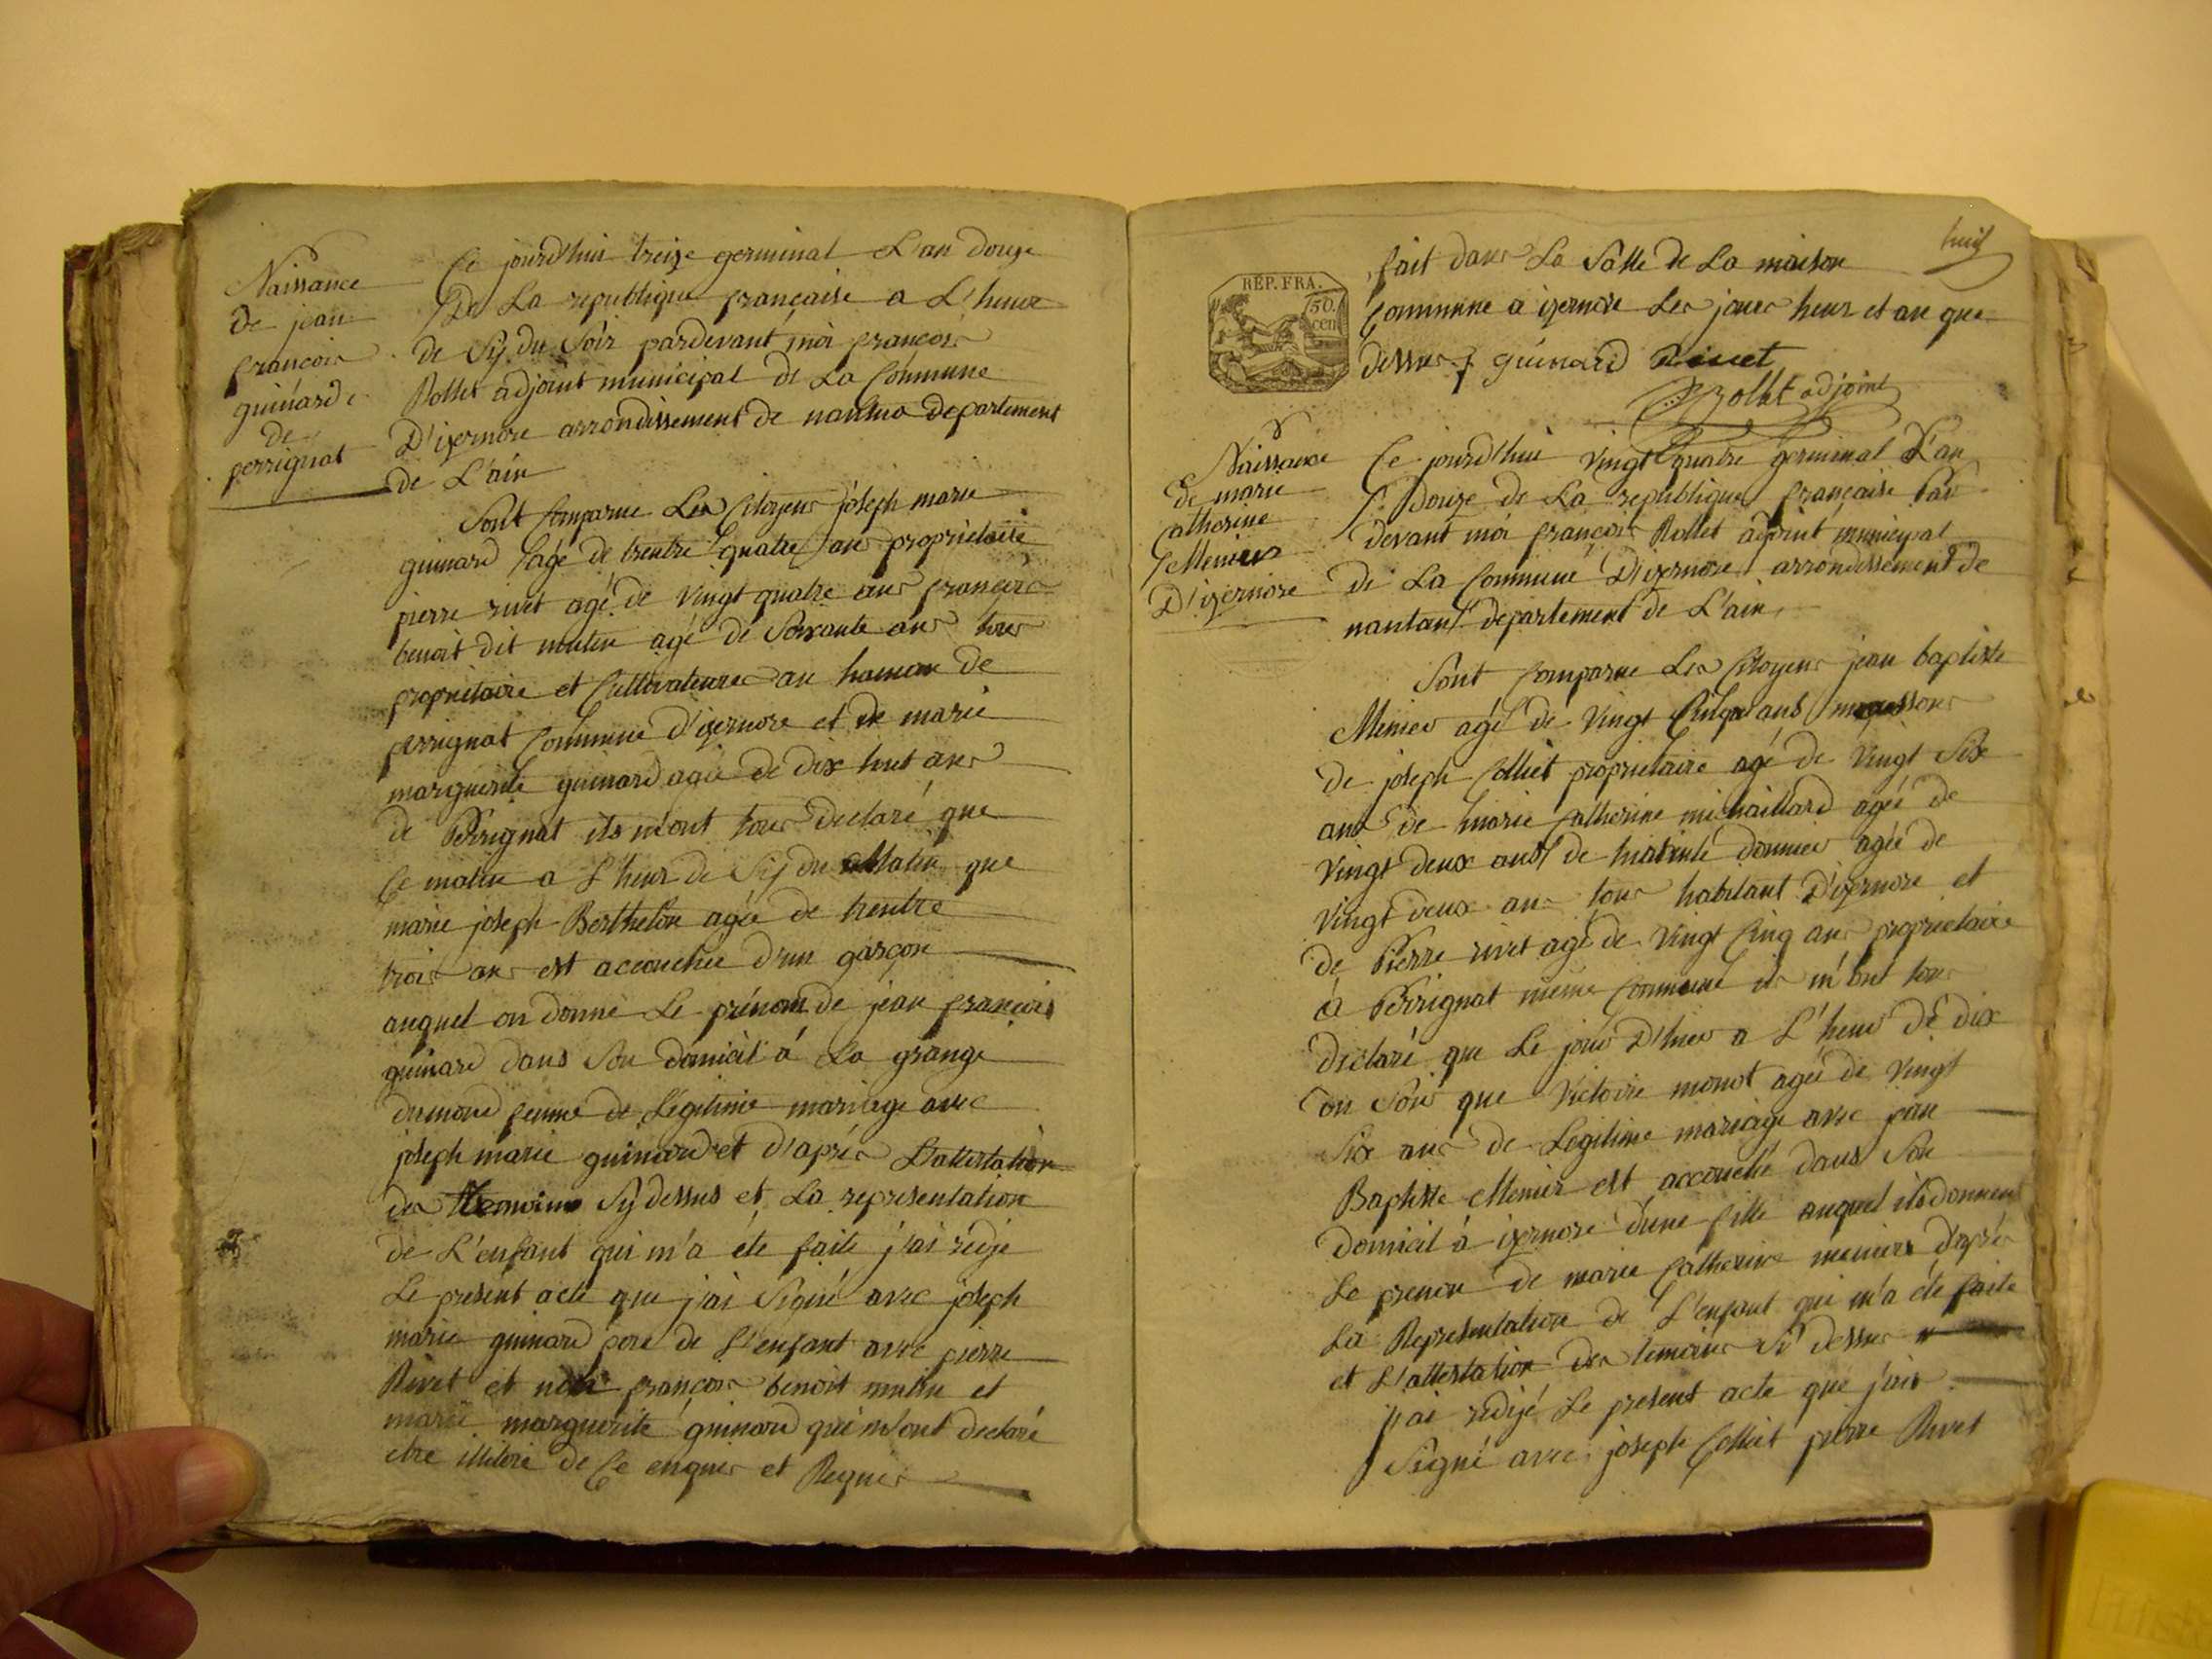 Naissance
de jean
françois
guinard
de
perrignat
Ce jourd'hui treize germinal L'an douze
De La republique française a L'heure
de Sij du Soir pardevant moi françois
Rollet adjoint municipal de La Commune
D'izernore arrondissement de nantua departement
de L'ain
Sont Comparue Les Citoyens joseph marie
guinard agé de trentre quatre ans proprietaire
pierre rivet agé de Vingt quatre ans françois
benoit dit mutin agé de Soixante ans tous
proprietaire et Cultivateures au hameau de
perrignat Commune d'izernore et de marie
marguerite guinard agée de dix huit ans
de Perrignat ils m'ont tous declaré que
Ce matin a L'heur de Sij du Matin que
marie joseph Berthelon agée de trentre
trois ans est accouchée d'un garçon
auquel on donne Le prénom de jean françois
guinard dans Son domicil á La grange
dumond femme de Légitime mariage avec
joseph marie guinard et d'aprés L'attestation
des Temoins Sy dessus et La representation
de L'enfant qui m'a été faite j'ai redjé
Le présent acte que j'ai Signé avec joseph
marie guinard pere de L'enfant avec pierre
Rivet et non françois benoit mutin et
marie marguerite guinard qui m'ont declaré
etre illitéré de Ce enquis et Requis
huit
RÉP. FRA.
50.
cen
fait dans La Salle de La maison
Commune a izernore Les jours heur et an que
dessus guinard Rivet
Rollet adjoint
Naissance
de marie
Catherine
Menier
D'izernore
Ce jourd'hui Vingt quatre germinal L'an
Douze de La republique française Par
devant moi françois Rollet adjoint municipal
de La Commune D'izernore arrondissement de
nantua departement de L'ain
Sont Comparue Les Citoyens jean baptiste
Menier agé de Vingt Cinq ans
de joseph Colliet proprietaire agé de Vingt Six
ans de marie Catherine michaillard agée de
Vingt deux ans de donnier agée de
Vingt deux ans tous habitant D'izernore et
de Pierre rivet agé de Vingt Cinq ans proprietaire
á Perrignat même Commune ils m'ont tous
declaré que Le jour D'hier a L'heur de dix
du Soir que Victoire monot agée de Vingt
Six ans de Legitime mariage avec jean
Baptiste Menier est accouchée dans Son
Domicil á izernore d'une fille auquel ils donnent
Le prenom de marie Catherine menier D'aprés
La Representation de L'enfant qui m'a été faite
et L'attestation des temoins Si dessus
j'ai redijé Le present acte que j'ai
Signé avec joseph Colliet pierre Rivet